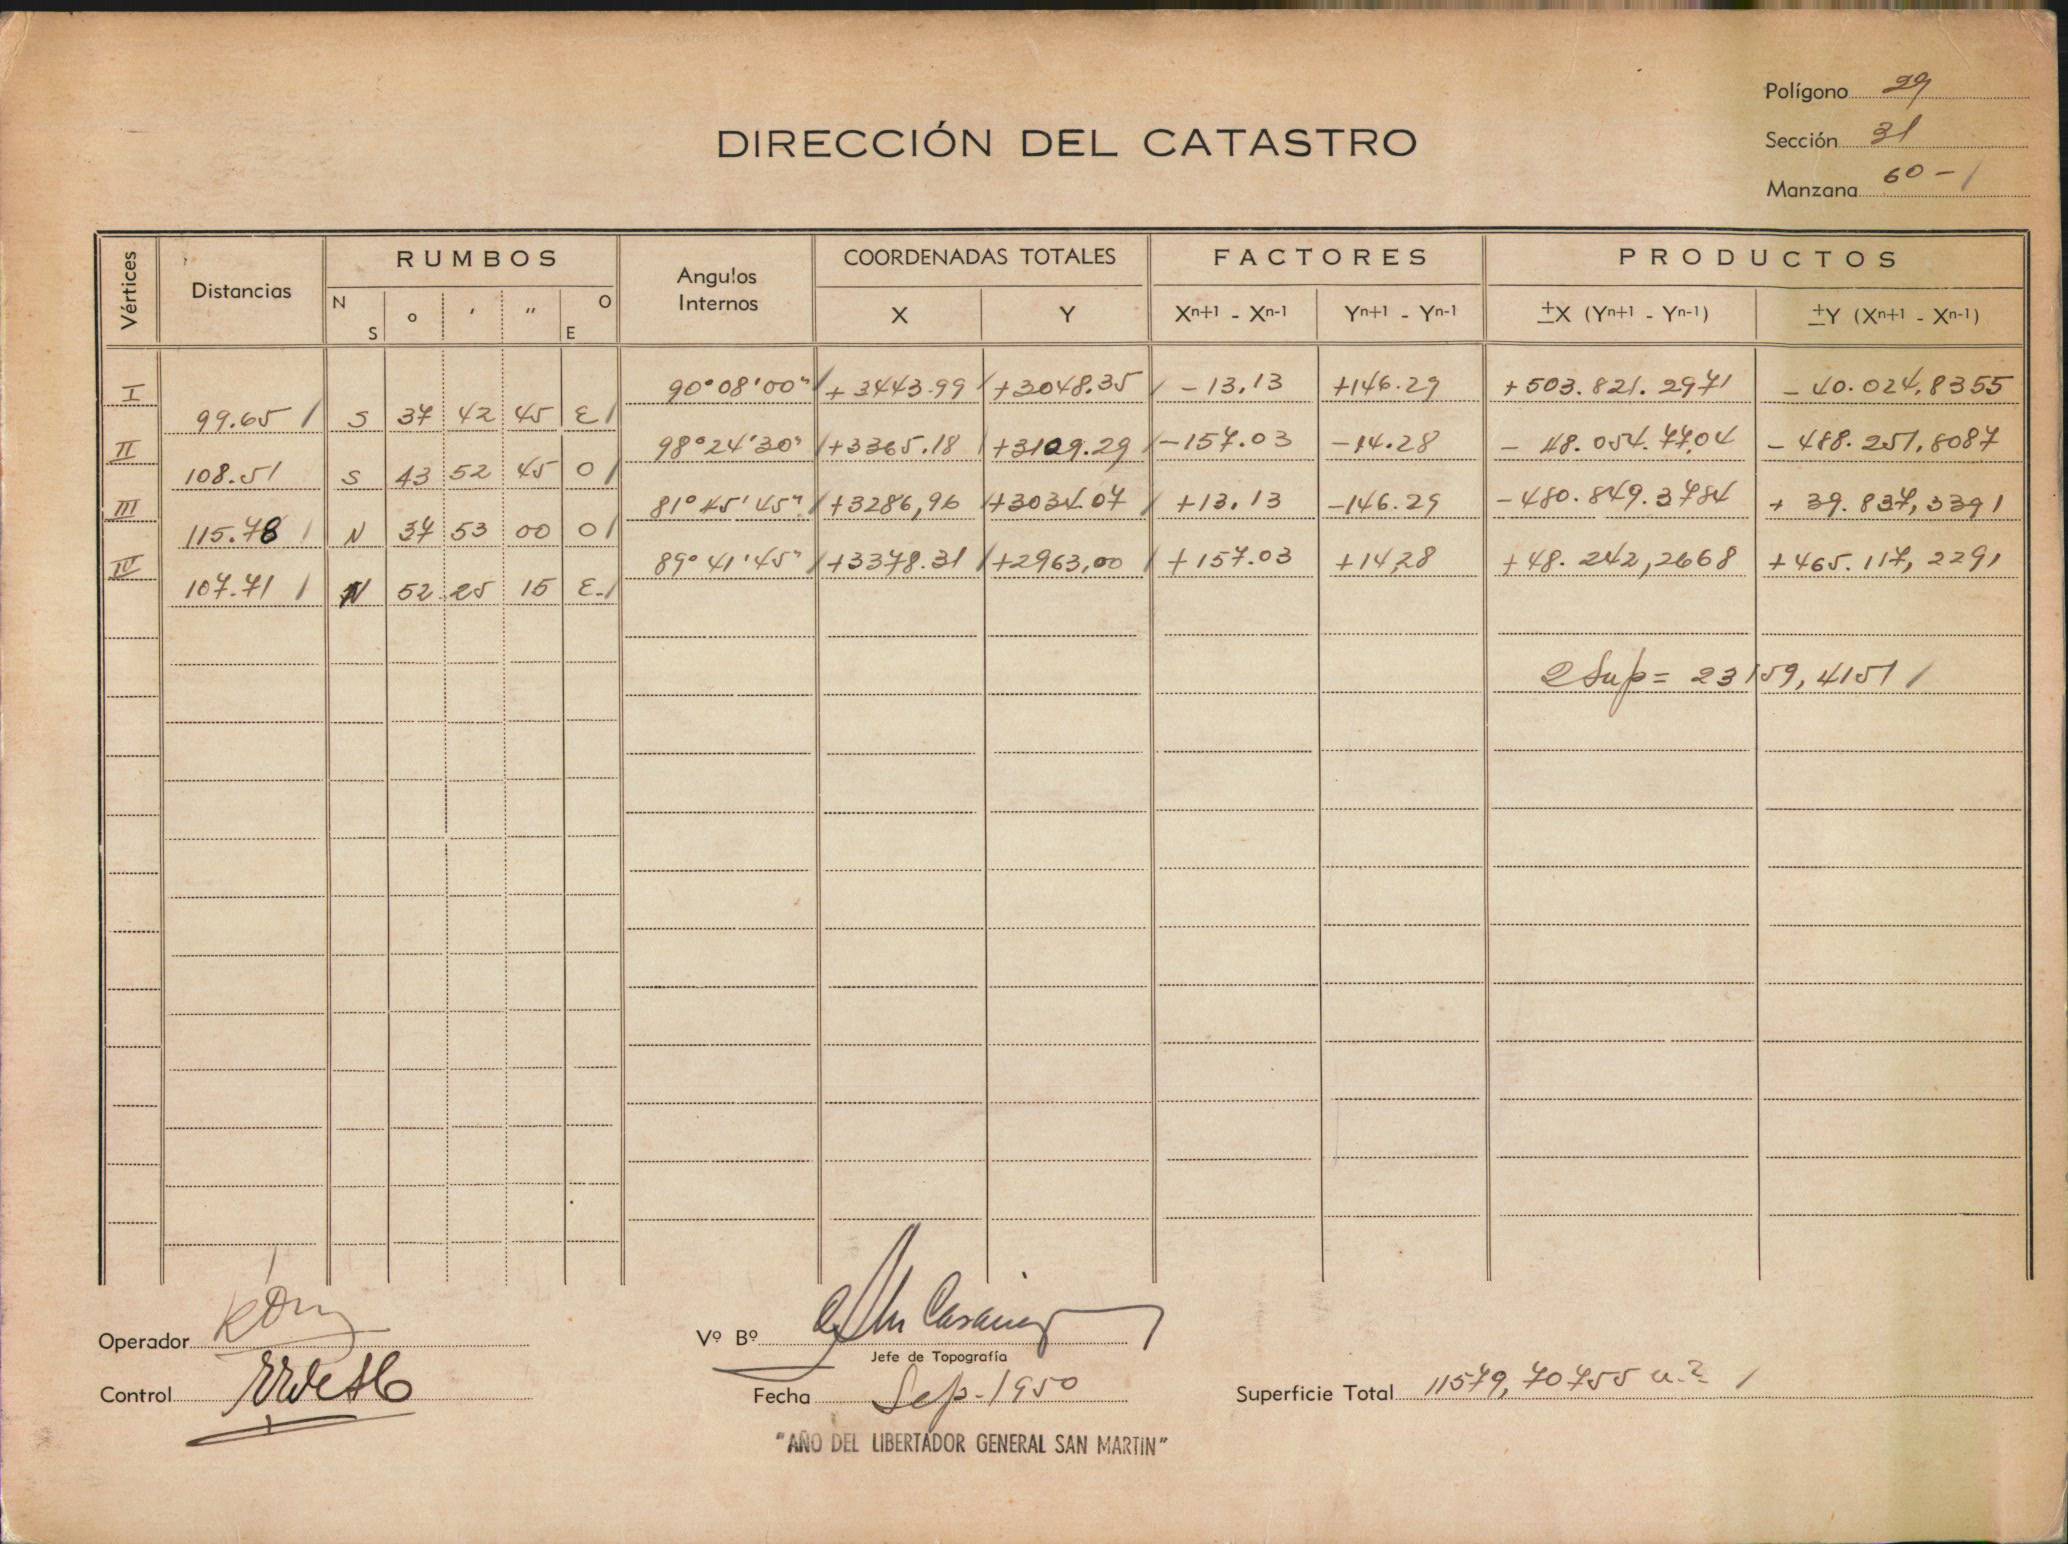 Polígono 29
Sección 31
Manzana 60-1
DIRECCIÓN DEL CATASTRO
Vértices Distancias RUMBOS Angulos Internos COORDENADAS TOTALES FACTORES PRODUCTOS
N S ° ' " O E X Y Xn+1 - Xn-1 Yn+1 - Yn-1 ±X (Yn+1 - Yn-1) ±Y (Xn+1 - Xn-1)
I 90°08'00" +3443.99 +3048.35 -13,13 +146.29 +503.821.2971 -40.024,8355
99.65 S 37 42 45 E
II 98°24'30" +3365.18 +3109.29 -157.03 -14.28 -48.054.7704 -488.251,8087
108.51 S 43 52 45 O
III 81°45'45" +3286,96 +3034.07 +13,13 -146.29 -480.849.3784 +39.837,3391
115.78 N 37 53 00 O
IV 89°41'45" +3378.31 +2963,00 +157.03 +14,28 +48.242,2668 +465.117,2291
107.71 N 52 25 15 E
2 Sup = 23159,4151
Operador
Vº Bº
Jefe de Topografía
Control
Fecha Sep-1950
Superficie Total 11579,70755 m.2
"AÑO DEL LIBERTADOR GENERAL SAN MARTIN"